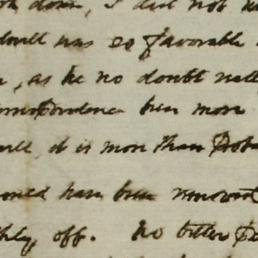 down, I did not
was so favorable
, as he no doubt
correspondence been more
it is more than
would have been removed
off. No bitter